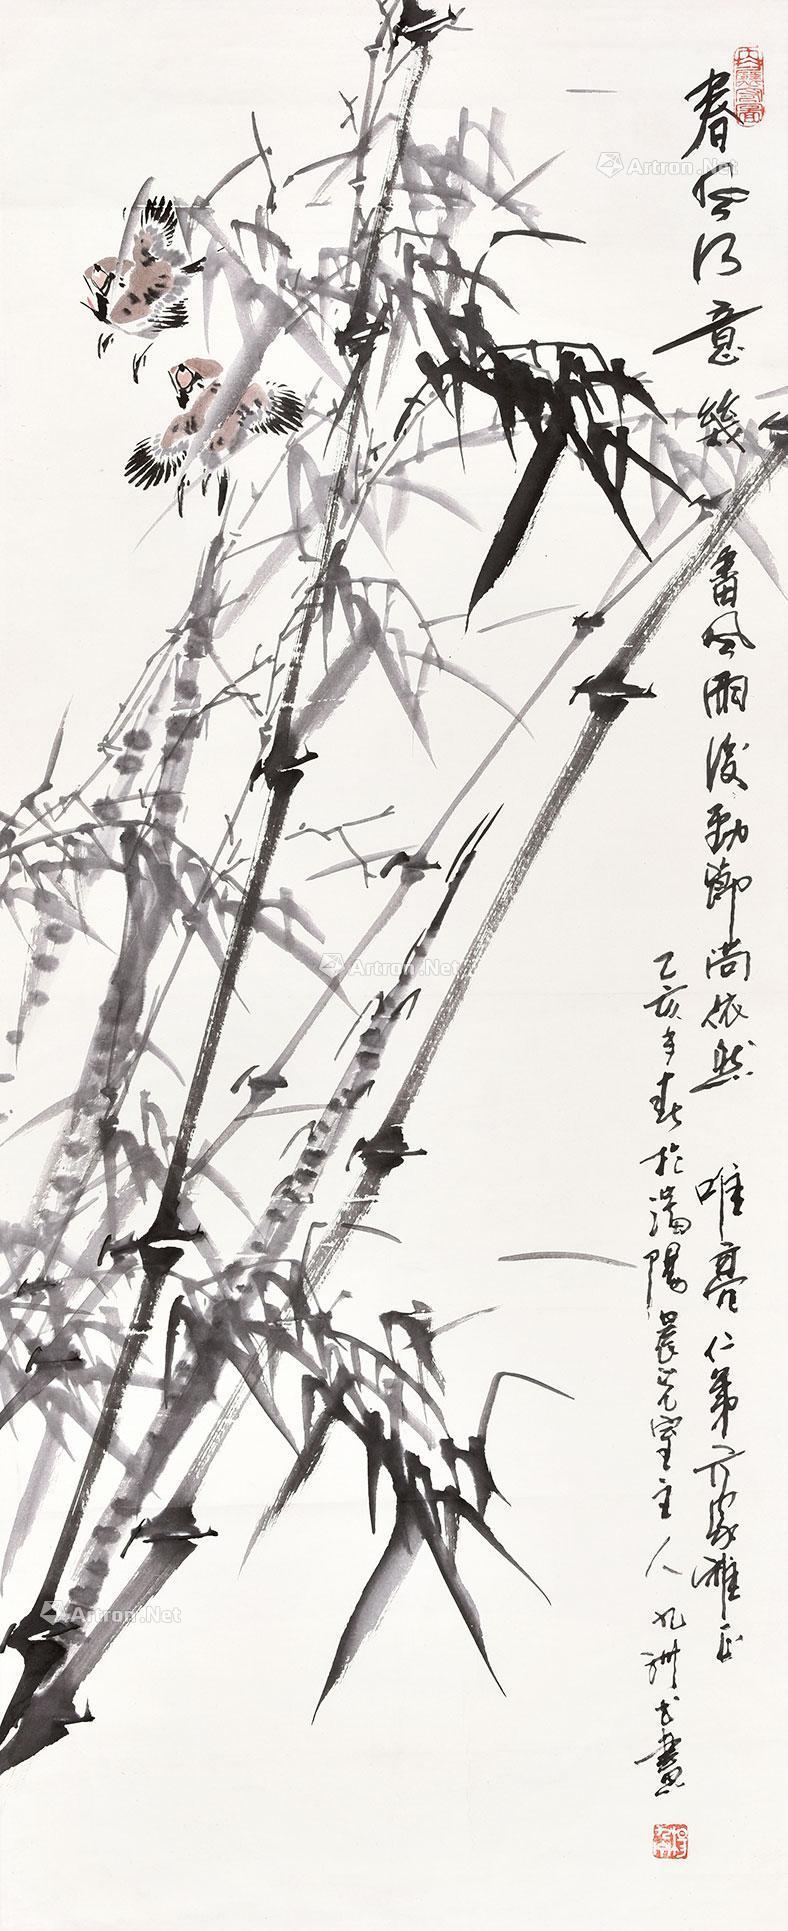 春风得意 几番风雨后劲节尚依然 唯亮仁弟方家雅正
乙亥年春於沈阳晨光室主人九洲书画
Artron.Net
Artron.Net
Artron.Net